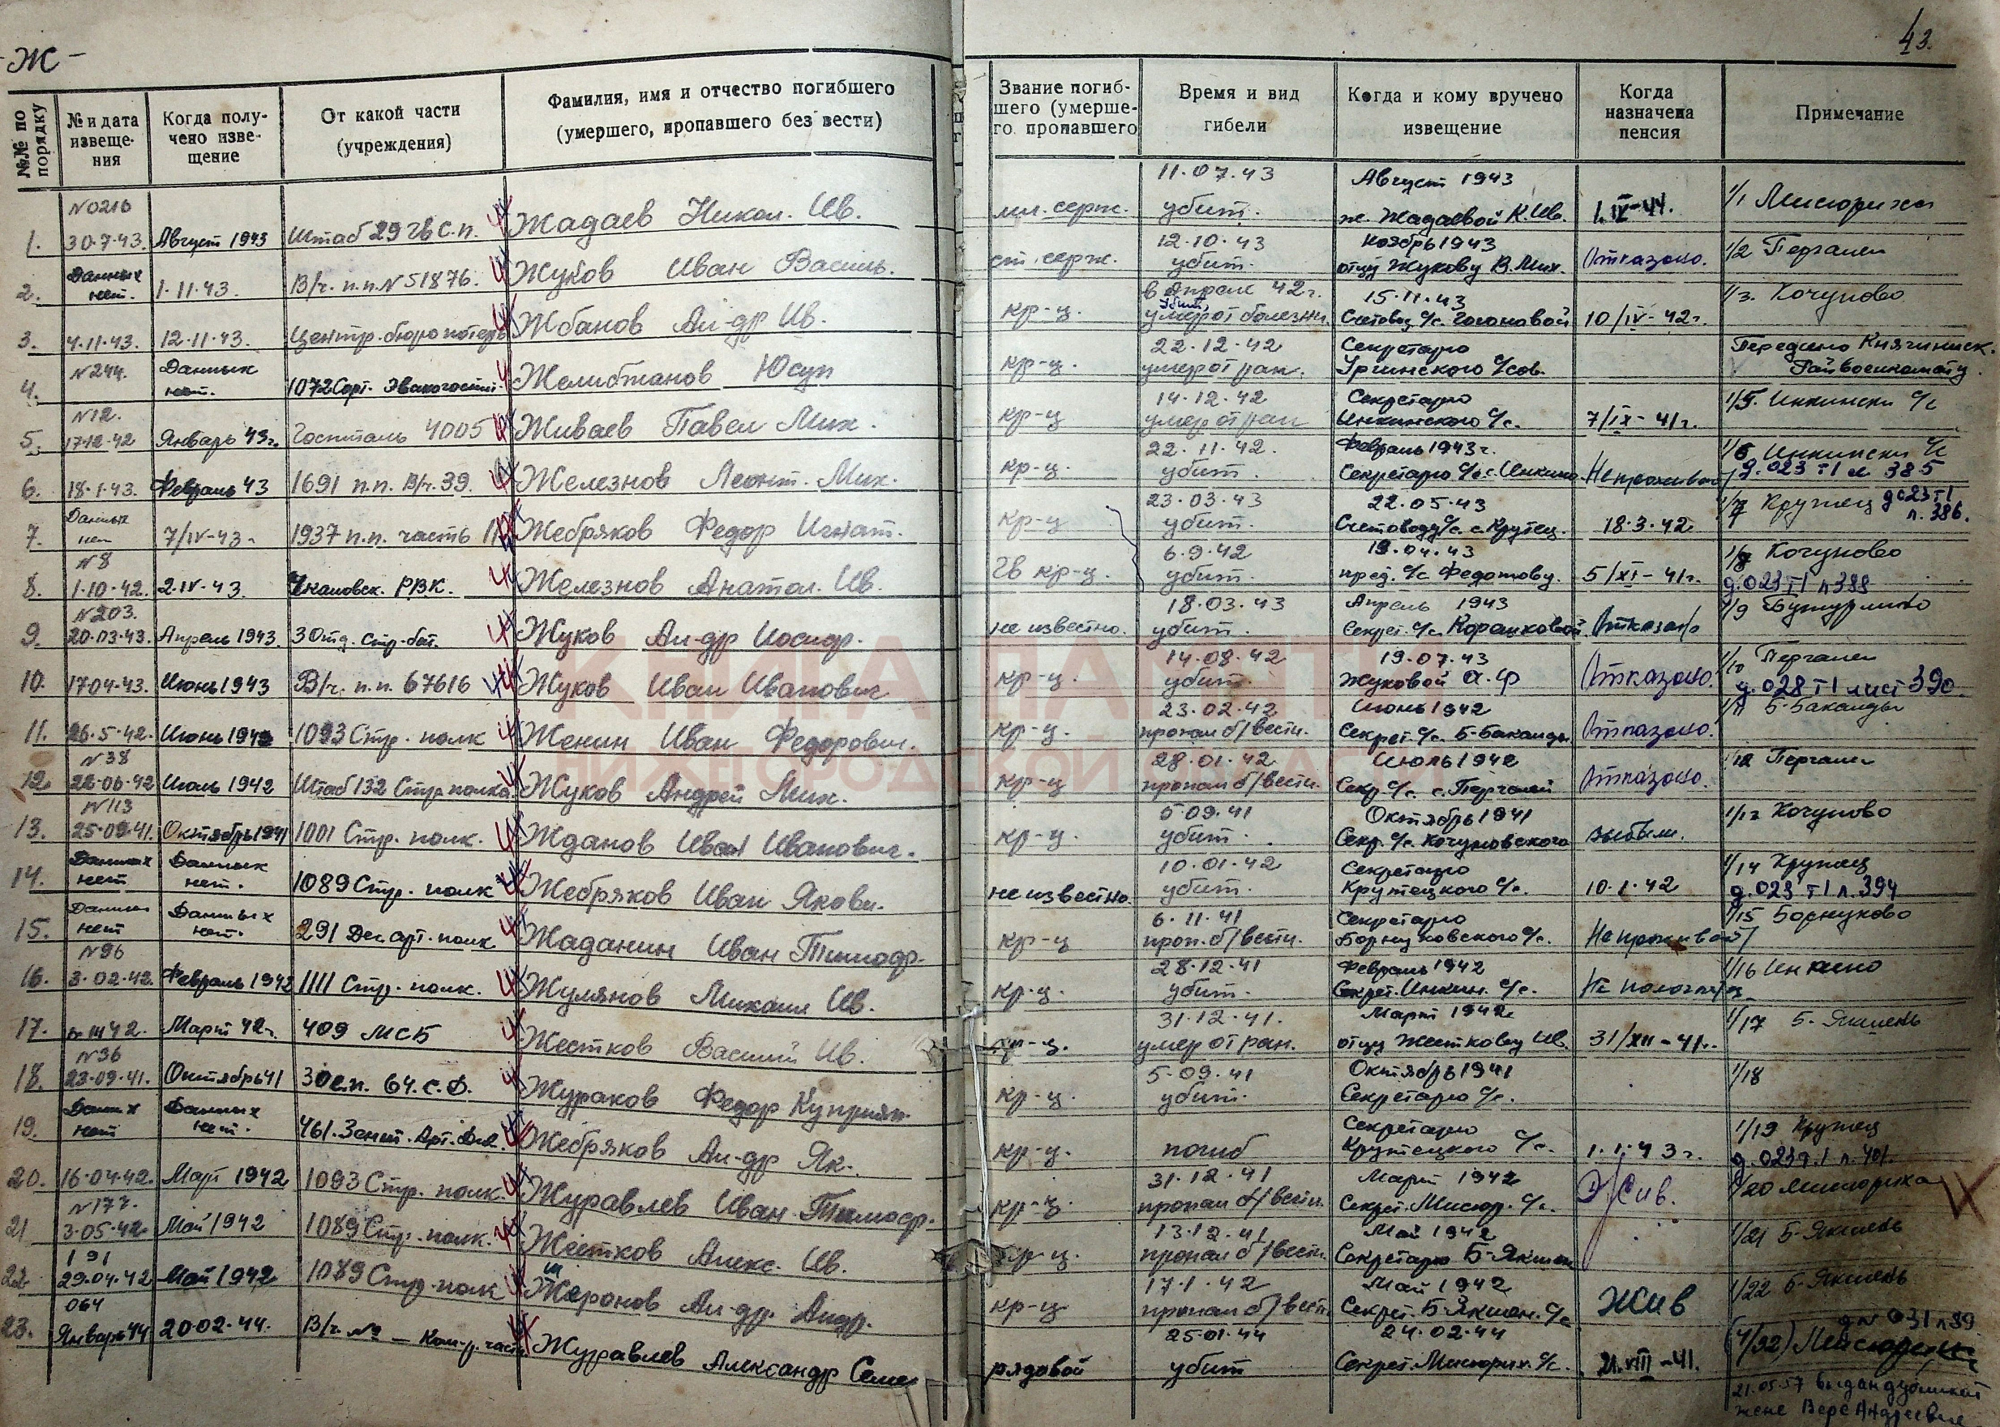 -Ж-
43.
№№ по порядку
№ и дата извеще-ния
Когда полу-чено изве-щение
От какой части (учреждения)
Фамилия, имя и отчество погибшего (умершего, пропавшего без вести)
Звание погиб-шего (умерше-го пропавшего
Время и вид гибели
Когда и кому вручено извещение
Когда назначена пенсия
Примечание
N0216 11.07.43 Август 1943
1. 30.7.43. Август 1943 Штаб 29 гв С.п. Жадаев Никол. Ив. мл. серж. убит. ж. Жадаевой К. Ив. 1.IV-44. 1/1
Данных 12.10.43 ноябрь 1943
2. нет. 1.11.43. В/ч. п.п. N51876. Жуков Иван Василь. ст. серж. убит. отцу Жукову В. Мих. Отказано. 1/2 Пергалеи
в Апреле 42г. убит 15.11.43
3. 4.11.43. 12.11.43. Центр. бюро потерь Жбанов Ал-др Ив. кр-ц. умер от болезни. Счетовод с/с. 10/IV-42г. 1/3. Кочуново
N244. Данных 22.12.42 Секретарю Передано Княгининск.
4. нет. 1072 Сорт. Эвакогоспит. Юсуп кр-ц. умер от ран. Ургинского с/сов. Райвоенкомату
N12. 14.12.42 Секретарю
5. 17.12.42 Январь 43г. Госпиталь 4005 Живаев Павел Мих. кр-ц умер от ран Инкинского с/с. 7/IX-41г. 1/5. Инкински с/с
22.11.42. Февраль 1943г.
6. 18.1.43. Февраль 43 1691 п.п. В/ч. 39. Железнов Леонт. Мих. кр-ц. убит. Секретарю с/с с. Инкино Не проживают 1/6 Инкински с/с д.023 т1 л 385
Данных 23.03.43 22.05.43
7. нет 7/IV-43г 1937 п.п. часть 11 Жебряков Федор Игнат. кр-ц убит. Счетоводу с/с. с Крутец. 18.3.42г 1/7 Крутец д023 т1 л.386.
N8 6.9.42 19.04.43
8. 1.10.42. 2.IV-43. Чкаловск. РВК. Железнов Анатол. Ив. Гв кр-ц. убит. пред. с/с Федотову. 5/XI-41г. 1/8 Кочуново д.023 т1 л388
N203. 18.03.43 Апрель 1943
9. 20.03.43. Апрель 1943. 3 отд. стр. бат. Жуков Ал-др Иосифр. не известно. убит. Секрет. с/с. 1/9 Бутурлино
14.08.42 19.07.43
10. 17.04.43. Июнь 1943 В/ч. п.п. 67616 Жуков Иван Иванович кр-ц. убит. Жуковой А.Ф Отказано. 1/10 Пергалеи д.028 т1 лист 390.
23.02.42 Июнь 1942
11. 26.5.42. Июнь 1942 1093 Стр. полк Женин Иван Федорович. кр-ц. пропал б/вести. Секрет. с/с. Б-Бакалды. Отказано. 1/11 Б-Бакалды
N38 28.01.42 Июль 1942
12. 22.06.42 Июль 1942 Штаб 132 Стр. полка. Жуков Андрей Мих. кр-ц пропал б/вести. Секр. с/с. с. Пергалей Отказано. 1/12 Пергалеи
N113 5.09.41 Октябрь 1941
13. 25.09.41. Октябрь 1941 1001 Стр. полк. Жданов Иван Иванович. кр-ц. убит. Секр. с/с. Кочуновского выбыли. Кочуново
Данных Данных 10.01.42 Секретарю
14. нет нет. 1089 Стр. полк Жебряков Иван Якови. не известно. убит. Крутецкого с/с. 10.1.42 1/14 Крутец д.023 т1 л.394
Данных Данных 6.11.41 Секретарю
15. нет нет. 291 Дес. арт. полк Жаданин Иван Тимофр. кр-ц проп. б/вести. Борнуковского с/с. Не проживают 1/15 Борнуково
N96 28.12.41 Февраль 1942
16. 3.02.42. Февраль 1942 1111 Стр. полк. Жулянов Михаил Ив. кр-ц. убит. Секрет. Инкин. с/с. 1/16 Инкино
31.12.41. Март 1942г
17. Март 42г. 409 МСБ Жестков Василий Ив. кр-ц. умер от ран. отцу Жесткову Ив. 31/XII-41г. 1/17 Б-Якшень
N36 5.09.41 Октябрь 1941
18. 23.09.41. Октябрь 41 30 с.п. 64. С.Д. Жураков Федор Куприян. кр-ц. убит. Секретарю с/с. 1/18
Данных Данных Секретарю
19. нет нет. 461. Зенит. Арт. Див. Жебряков Ал-др Як. кр-ц. погиб Крутецкого с/с. 1.1.43г. 1/19 Крутец д.023 т.1 л.401.
31.12.41 Март 1942
20. 16.04.42. Март 1942 1093 Стр. полк. Журавлев Иван Тимофр. кр-ц. пропал б/вести. Секрет. Мисюр. с/с. Жив. 1/20 Мисюриха
N177. 13.12.41 Май 1942
21 3.05.42. Май 1942 1089 Стр. полк. Жестков Алекс. Ив. кр-ц. пропал б/вести. Секретарю Б-Якшен 1/21 Б-Якшень
191 17.1.42 Май 1942
22 29.04.42 Май 1942 1089 Стр. полк Жаронов Ал-др. Андр. кр-ц пропал б/вести Секрет. Б-Якшен. с/с Жив 1/22 Б-Якшень
064 25.01.44 24.02.44 д N 031 л 89
23. Январь 44 20.02.44. В/ч. № — Журавлев Александр Семе рядовой убит Секрет. Мисюрих. с/с. 21.VIII-41.
21.05.57 выдан дубликат
жене Вере Андреевне
КНИГА ПАМЯТИ
НИЖЕГОРОДСКОЙ ОБЛАСТИ